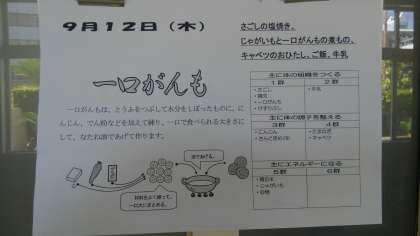 9月12日（木）
さごしの塩焼き、
じゃがいもと一口がんもの煮もの、
キャベツのおひたし、ご飯、牛乳
一口がんも
一口がんもは、とうふをつぶして水分をしぼったものに、に
んじん、でん粉などを加えて練り、一口で食べられる大きさに
して、なたね油であげて作ります。
油であげる。
材料をよく練って、
一口大にまとめる。
主に体の組織をつくる
1群 2群
・さごし ・牛乳
・一口がんも
主に体の調子を整える
3群 4群
・にんじん ・たまねぎ
・キャベツ
主にエネルギーになる
5群 6群
・精白米
・じゃがいも